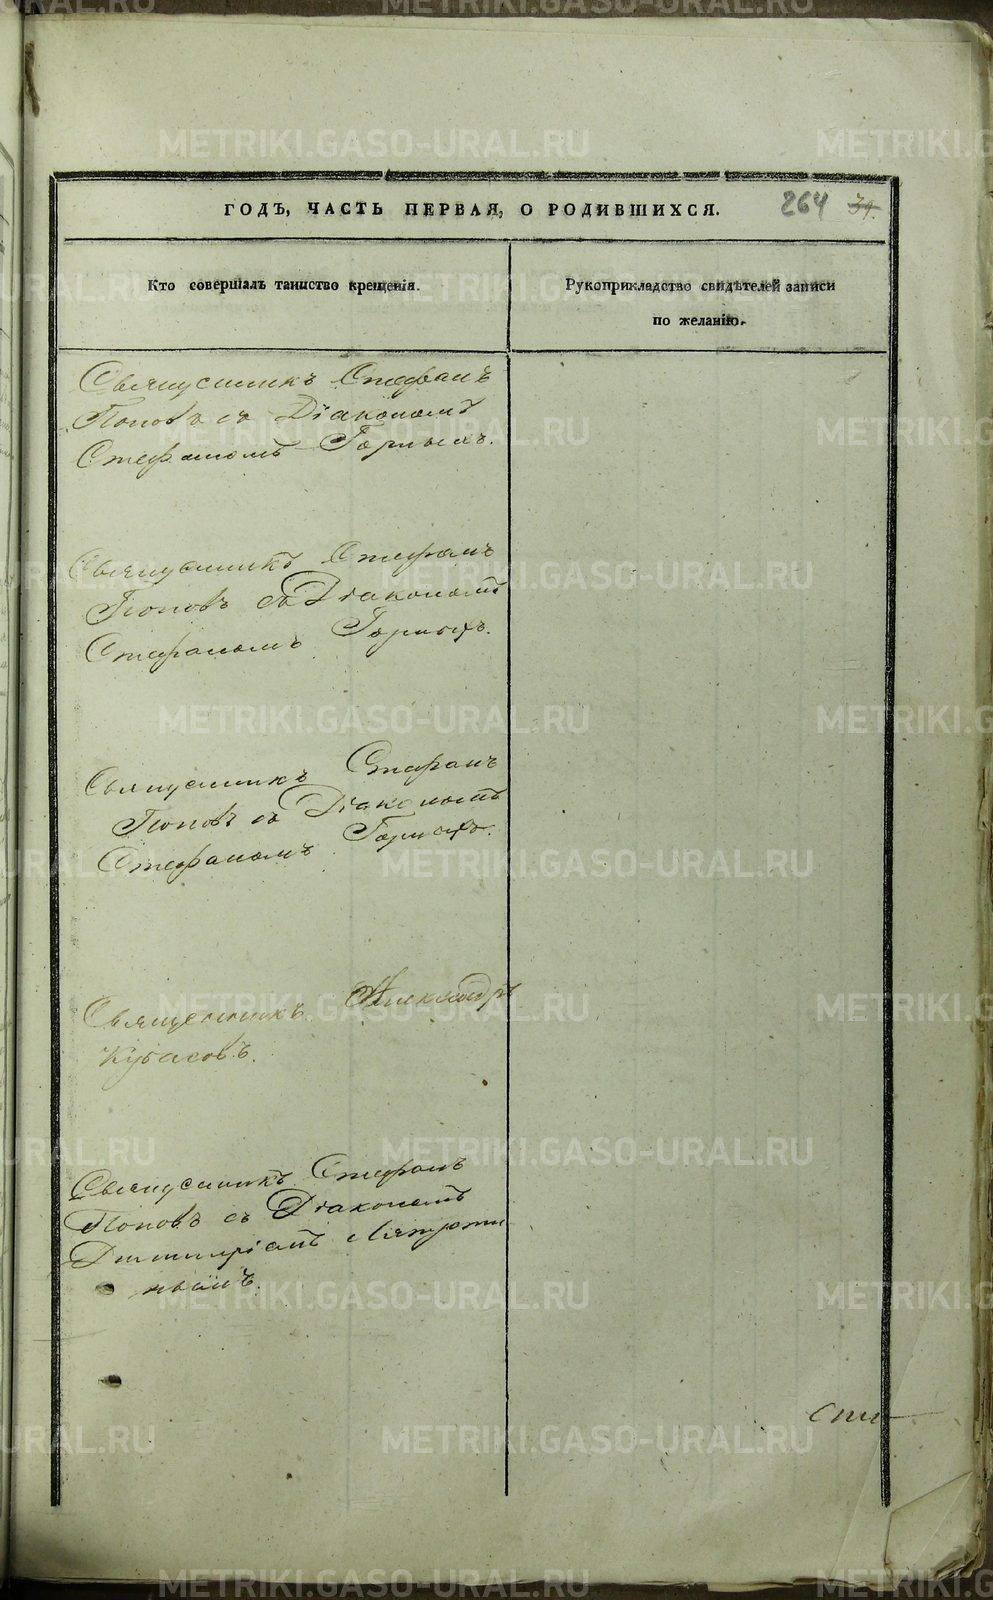 ГОДЪ, ЧАСТЬ ПЕРВАЯ, О РОДИВШИХСЯ. 264 34.
Кто совершалъ таинство крещенія.
Рукоприкладство свидѣтелей записи
по желанію.
Священникъ Стефанъ
Поповъ съ Діакономъ
Стефаномъ Горныхъ.
Священникъ Стефанъ
Поповъ съ Діакономъ
Стефаномъ Горныхъ.
Священникъ Стефанъ
Поповъ съ Діакономъ
Стефаномъ Горныхъ.
Священникъ Александръ
Кубасовъ.
Священникъ Стефанъ
Поповъ съ Діакономъ
Димитріемъ
METRIKI.GASO-URAL.RU